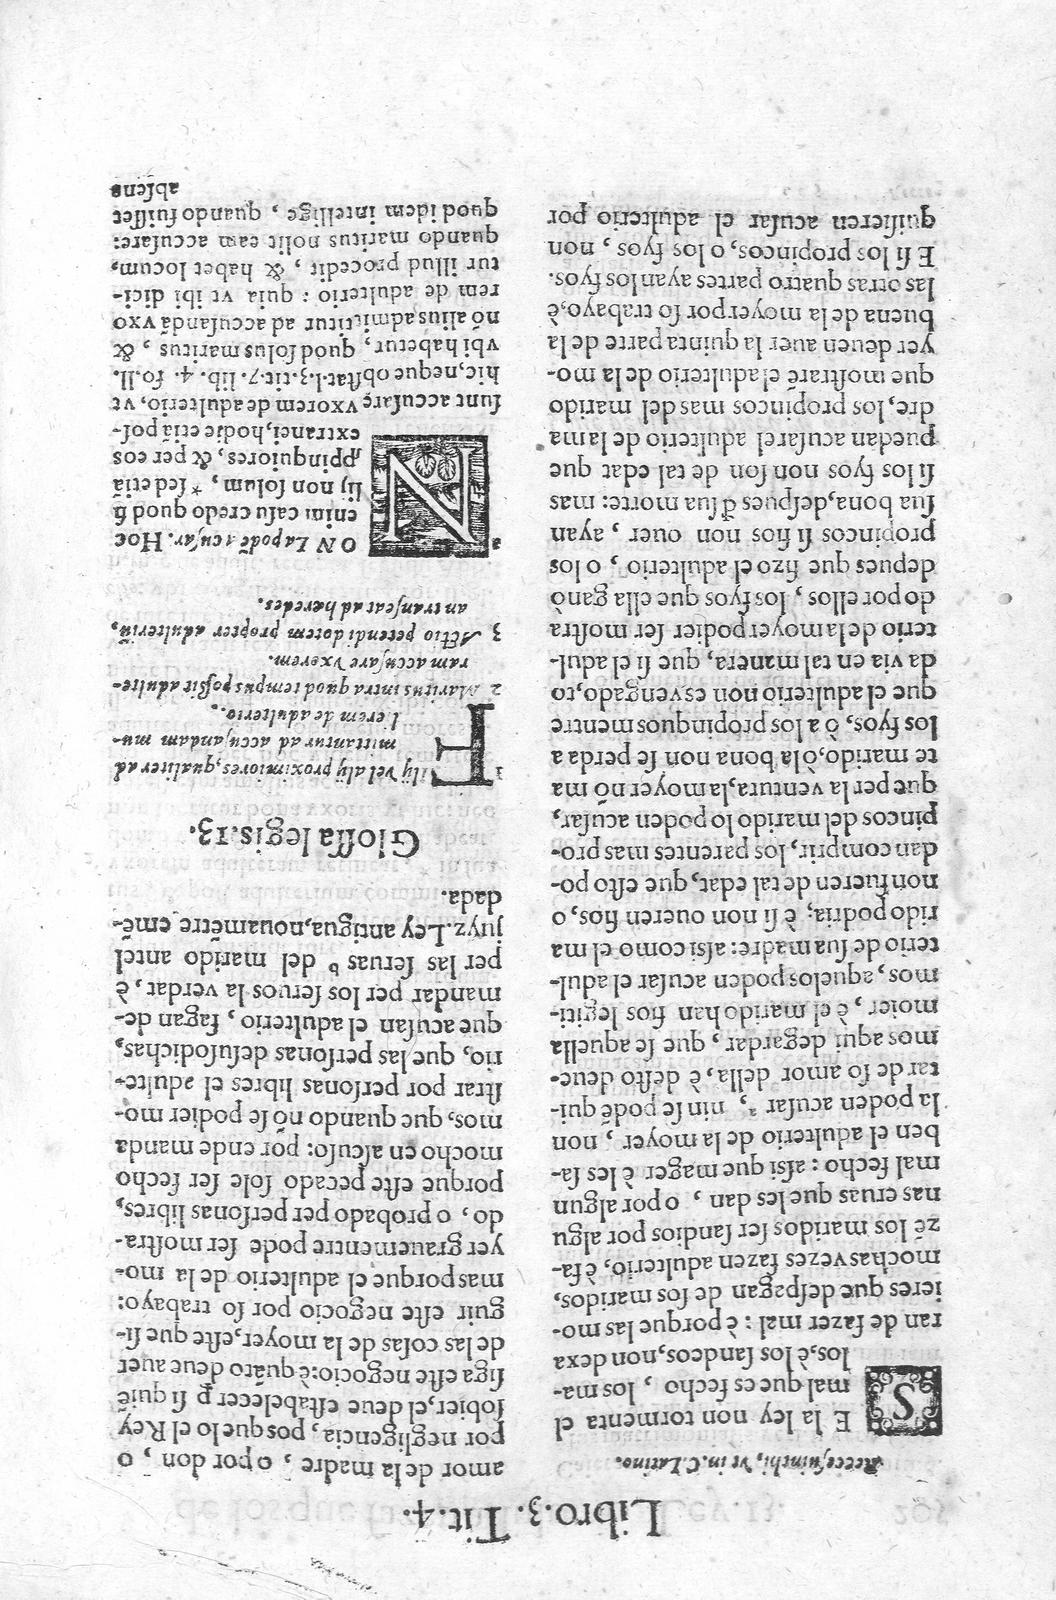 Libro.3. Tit.4.
Reccesuinthi, vt in. C. Latino.
SE la ley non tormenta el
mal que es fecho , los ma-
los, è los ſandeos, non dexa
ran de fazer mal : è porque las mo-
ieres que deſpagan de ſos maridos,
mochas vezes fazen adulterio, è fa-
zẽ los maridos ſer ſandios por algu
nas eruas que les dan , o por algun
mal fecho : aſsi que mager è les ſa-
ben el adulterio de la moyer , non
la poden acuſar ª, nin ſe podẽ qui-
tar de ſo amor della, è deſto deue-
mos aqui degardar, que ſe aquella
moier , è el marido han fios legiti-
mos, aquelos poden acuſar el adul-
terio de ſua madre: aſsi como el ma
rido podria; è ſi non oueren fios, o
non fueren de tal edat, que eſto po-
dan comprir, los parentes mas pro-
pincos del marido lo poden acuſar,
que per la ventura, la moyer nõ ma
te marido, ò la bona non ſe perda a
los fyos, ò a los propinquos mentre
que el adulterio non es vengado, to
da via en tal manera, que ſi el adul-
terio de la moyer podier ſer moſtra
do por ellos , los fyos que ella ganò
depues que fizo el adulterio , o los
propincos ſi fios non ouer , ayan
ſua bona, deſpues đ ſua morte: mas
ſi los fyos non ſon de tal edat que
puedan acuſar el adulterio de la ma
dre, los propincos mas del marido
que moſtrarẽ el adulterio de la mo-
yer deuen auer la quinta parte de la
buena de la moyer por ſo trabayo, è
las otras quatro partes ayan los fyos.
E ſi los propincos, o los fyos , non
quiſieren acuſar el adulterio por
amor de la madre , o por don , o
por negligencia, pos que lo el Rey
ſobier, el deue eſtabelecer ꝑ ſi quiẽ
ſiga eſte negocio: è quãto deue auer
de las coſas de la moyer, eſte que ſi-
guir eſte negocio por ſo trabayo:
mas porque el adulterio de la mo-
yer grauemente pode ſer moſtra-
do , o probado per perſonas libres,
porque eſte pecado ſole ſer fecho
mocho en aſcuſo: por ende manda
mos, que quando nõ ſe podier mo-
ſtrar por perſonas libres el adulte-
rio, que las perſonas deſuſo dichas,
que acuſan el adulterio , fagan de-
mandar per los ſeruos la verdat, è
per las ſeruas ᵇ del marido antel
juyz. Ley antigua, nouamẽtre emẽ-
dada.
Gloſſa legis. 13.
1 Filij vel alij proximiores, qualiter ad
mittantur ad accuſandam mu-
lierem de adulterio.
2 Maritus intra quod tempus poſſit adulte-
ram accuſare vxorem.
3 Actio petendi dotem propter adulteriũ,
an tranſeat ad hæredes.
a NON La podẽ acuſar. Hoc
enim caſu credo quod fi
lij non ſolum , * ſed etiã
ꝓpinquiores, & per eos
extranei, hodie etiã poſ-
ſunt accuſare vxorem de adulterio, vt
hic, neque obſtat. l. 3. tit. 7. lib. 4. fo. ll.
vbi habetur, quod ſolus maritus , &
nõ alius admittitur ad accuſandã vxo
rem de adulterio : quia vt ibi dici-
tur illud procedit , & habet locum,
quando maritus nolit eam accuſare:
quod idem intellige , quando fuiſſet
abſens